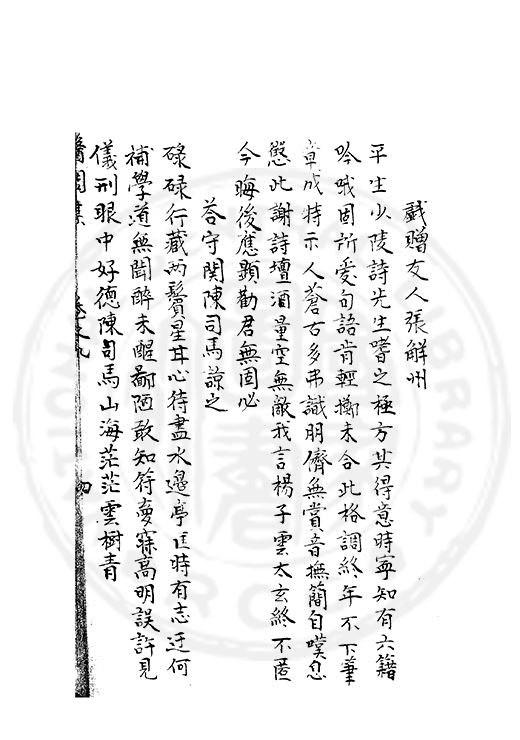 戲贈友人張解州
平生少陵詩先生嗜之極方其得意時寧知有六籍
吟哦固所愛句語肯輕擲未合此格調終年不下筆
章成特示人蒼古多弗識朋儕無賞音撫簡自嘆息
愍此謝詩壇酒量空無敵我言楊子雲太玄終不匿
今晦後應顯勸君無固必
荅守関陳司馬諒之
碌碌行藏两鬢星丹心待盡水邊亭匡時有志迂何
補學道無聞醉未醒鄙陋敢知符夢寐高明誤許見
儀刑眼中好德陳司馬山海茫茫雲樹青